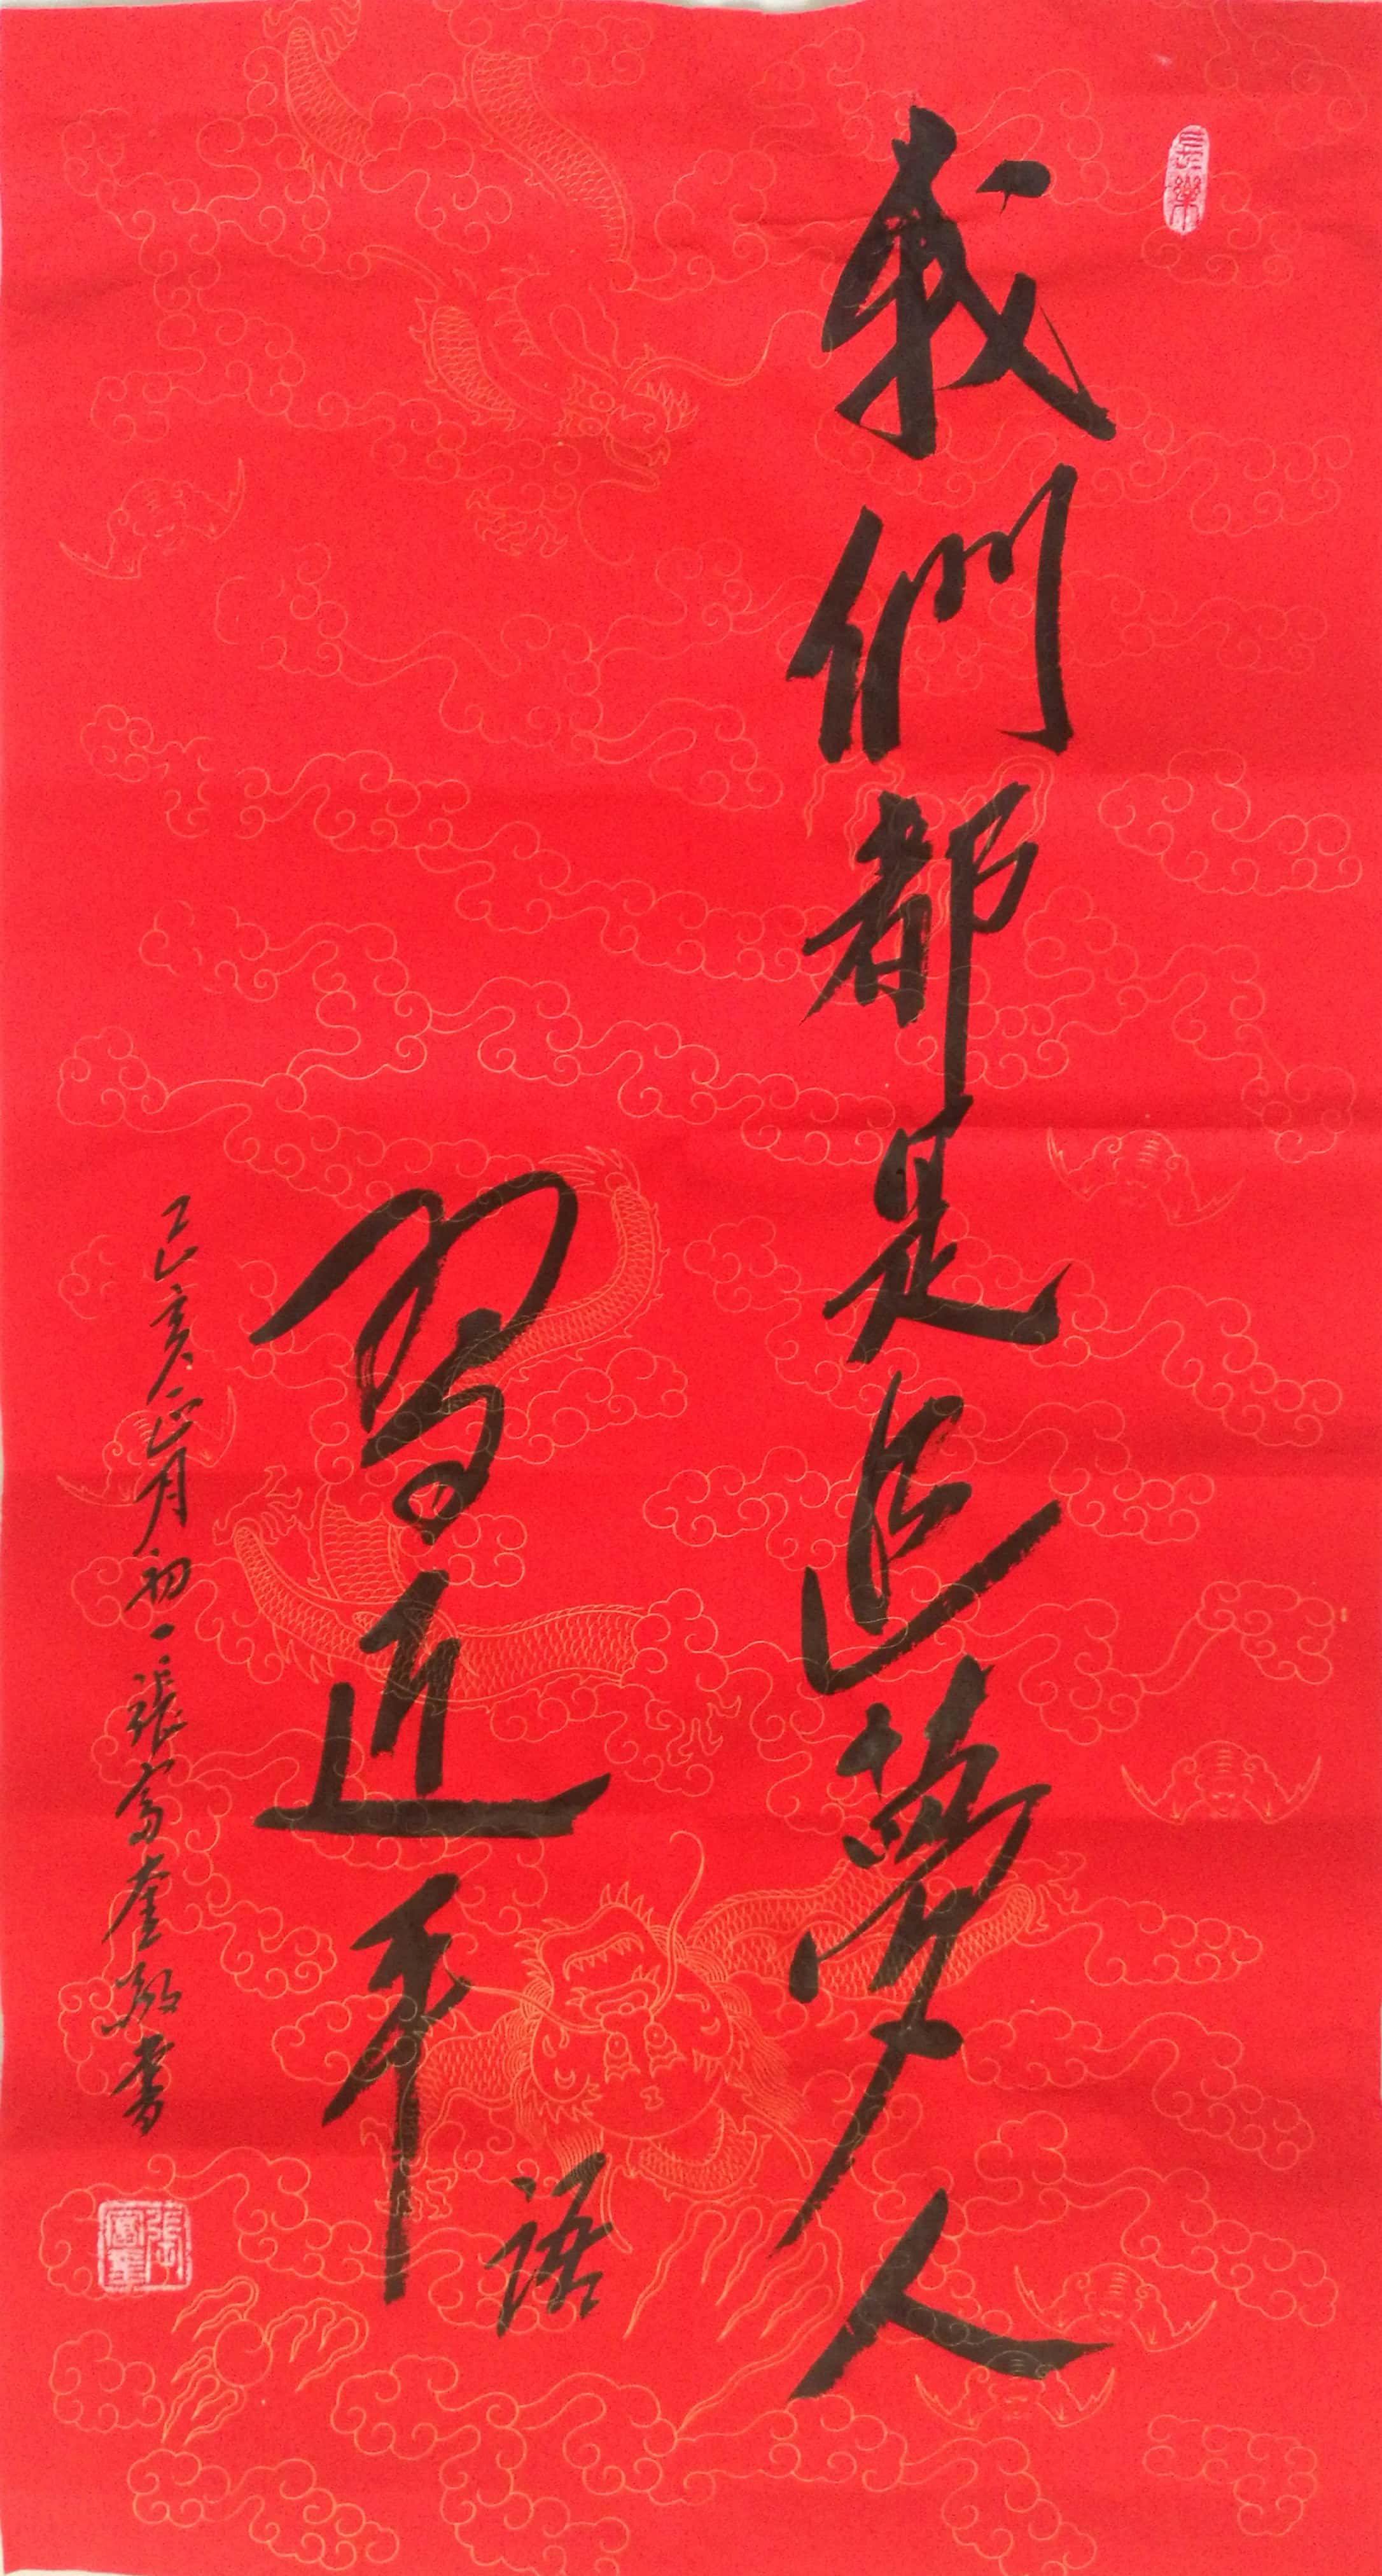 長樂
我們都是追夢人
習近平
語
己亥正月初一張富奎敬書
張富奎